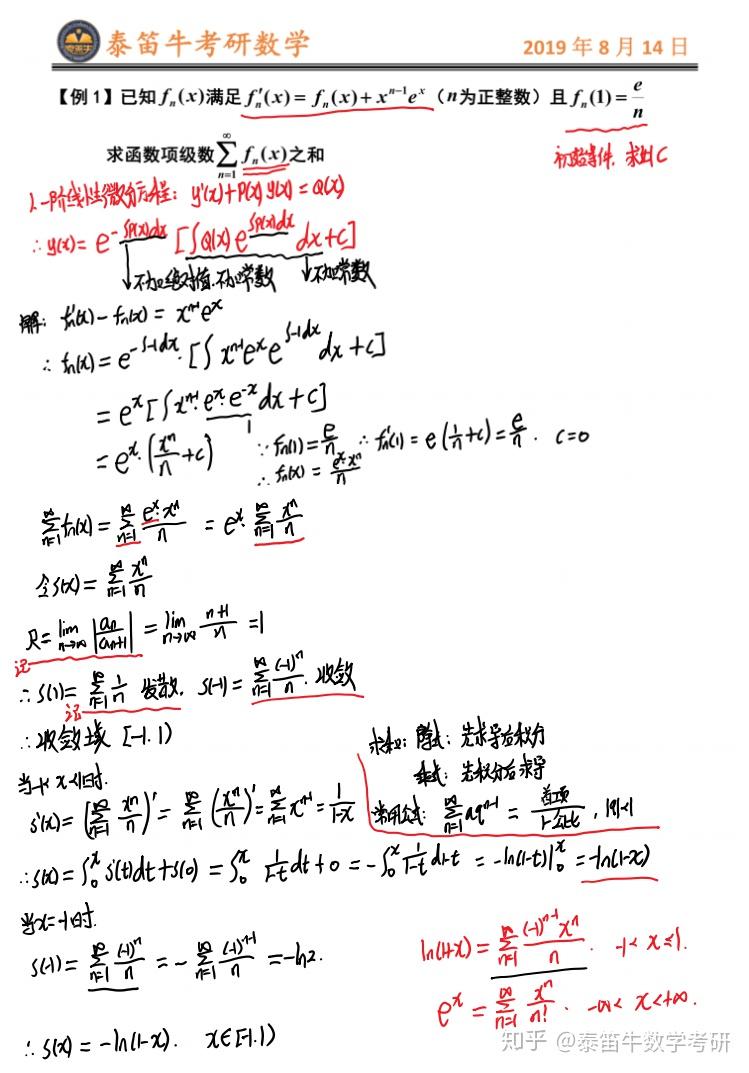 泰笛牛考研数学
2019 年 8 月 14 日
【例 1】已知 fₙ(x)满足 fₙ′(x) = fₙ(x) + xⁿ⁻¹eˣ (n为正整数) 且 fₙ(1) = e/n
求函数项级数 ∑_{n=1}^{∞} fₙ(x) 之和
初始条件, 求出C
1. 一阶线性微分方程: y′(x)+P(x)y(x) = Q(x)
∴ y(x) = e^{-∫P(x)dx} [∫Q(x)e^{∫P(x)dx} dx + c]
不加绝对值.不加常数 不加常数
解: fₙ′(x) - fₙ(x) = xⁿ⁻¹eˣ
∴ fₙ(x) = e^{-∫-1dx}·[∫xⁿ⁻¹eˣe^{∫-1dx} dx + c]
= eˣ[∫xⁿ⁻¹·eˣ·e⁻ˣ dx + c]
1
= eˣ·(xⁿ/n + c) ∵ fₙ(1) = e/n ∴ fₙ′(1) = e(1/n + c) = e/n. c=0
∴ fₙ(x) = eˣ·xⁿ/n
∑_{n=1}^{∞} fₙ(x) = ∑_{n=1}^{∞} eˣ·xⁿ/n = eˣ·∑_{n=1}^{∞} xⁿ/n
令S(x) = ∑_{n=1}^{∞} xⁿ/n
R = lim_{n→∞} |aₙ/aₙ₊₁| = lim_{n→∞} (n+1)/n = 1
记
∴ S(1) = ∑_{n=1}^{∞} 1/n 发散. S(-1) = ∑_{n=1}^{∞} (-1)ⁿ/n. 收敛
记
∴ 收敛域 [-1.1)
求和: 除式: 先求导后积分
乘式: 先积分后求导
常用公式: ∑_{n=1}^{∞} aqⁿ⁻¹ = 首项/(1-公比), |q|<1
当-1<x<1时.
S′(x) = (∑_{n=1}^{∞} xⁿ/n)′ = ∑_{n=1}^{∞} (xⁿ/n)′ = ∑_{n=1}^{∞} xⁿ⁻¹ = 1/(1-x)
∴ S(x) = ∫₀ˣ S′(t)dt + S(0) = ∫₀ˣ 1/(1-t) dt + 0 = -∫₀ˣ 1/(1-t) d1-t = -ln(1-t)|₀ˣ = -ln(1-x)
当x=-1时.
S(-1) = ∑_{n=1}^{∞} (-1)ⁿ/n = -∑_{n=1}^{∞} (-1)ⁿ⁻¹/n = -ln2.
ln(1+x) = ∑_{n=1}^{∞} (-1)ⁿ⁻¹xⁿ/n. -1< x ≤1.
eˣ = ∑_{n=1}^{∞} xⁿ/n!. -∞< x<+∞.
∴ S(x) = -ln(1-x). x∈[-1.1)
知乎 @泰笛牛数学考研